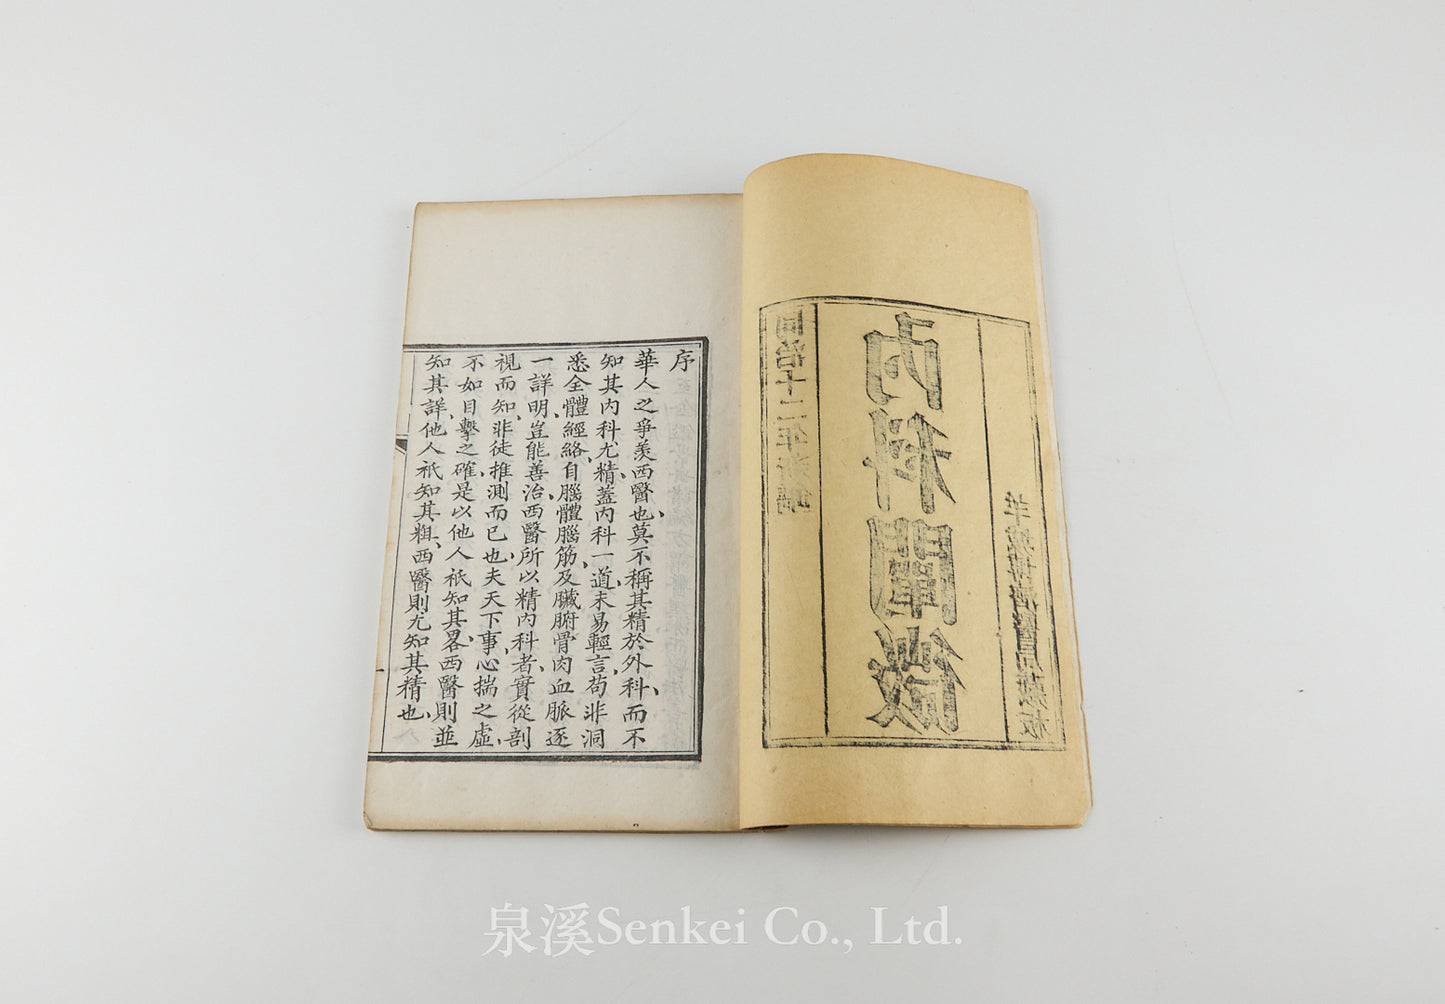 同治十二年新鐫
內科闡微
羊城博濟醫局藏板
序
華人之爭羨西醫也、莫不稱其精於外科、而不
知其內科尤精、蓋內科一道、未易輕言、苟非洞
悉全體經絡、自腦體腦筋、及臟腑骨肉血脈、逐
一詳明、豈能善治、西醫所以精內科者、實從剖
視而知、非徒推測而已也、夫天下事、心揣之虛、
不如目擊之確、是以他人祇知其畧、西醫則並
知其詳、他人祇知其粗、西醫則尤知其精也、
泉溪Senkei Co., Ltd.